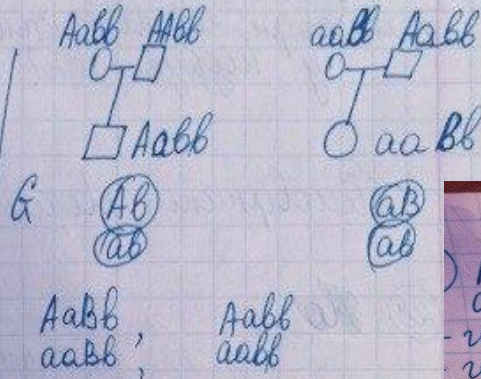 Aabb AAbb aaBb Aabb
Aabb aaBb
G Ab aB
ab ab
AaBb, Aabb
aaBb, aabb